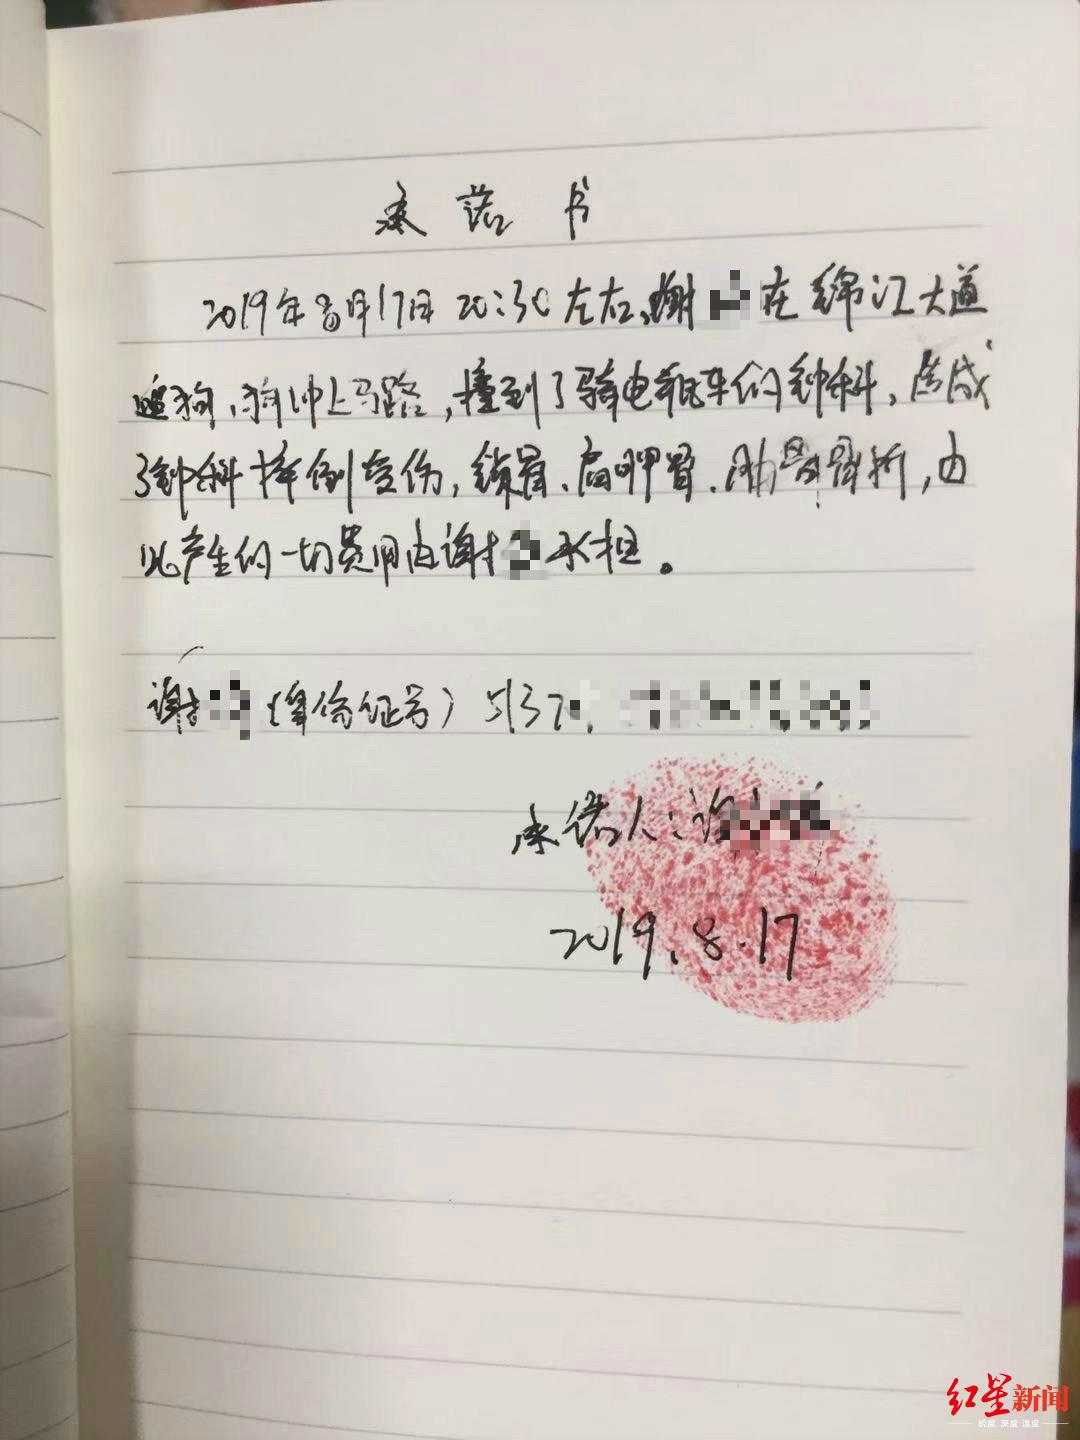 承诺书
2019年8月17日 20:30左右,谢在锦江大道
遛狗,狗冲上马路,撞到了骑电瓶车的钟科,造成
了钟科摔倒受伤,锁骨、肩胛骨、肋骨骨折,由
此产生的一切费用由谢承担。
谢(身份证号)5137
承诺人:谢
2019.8.17
红星新闻
锐度 深度 温度